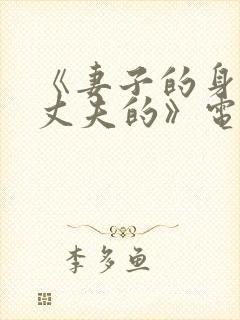 《妻子的身
丈夫的》电
李多鱼